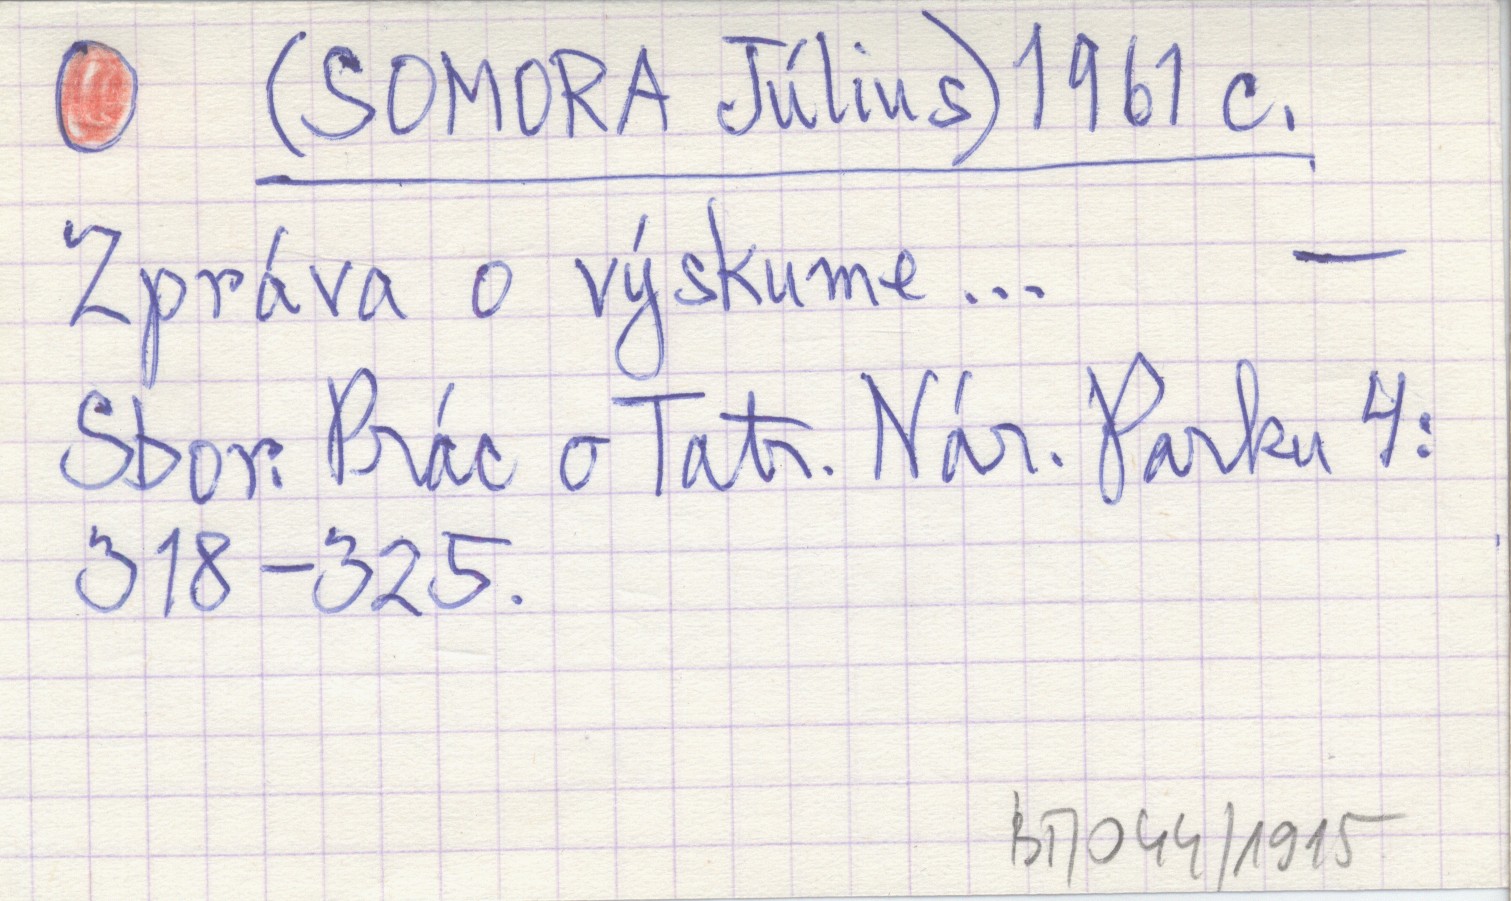 (SOMORA Július) 1961 c.
Zpráva o výskume... —
Sbor. Prác o Tatr. Nár. Parku 4:
318-325.
BП044/1915